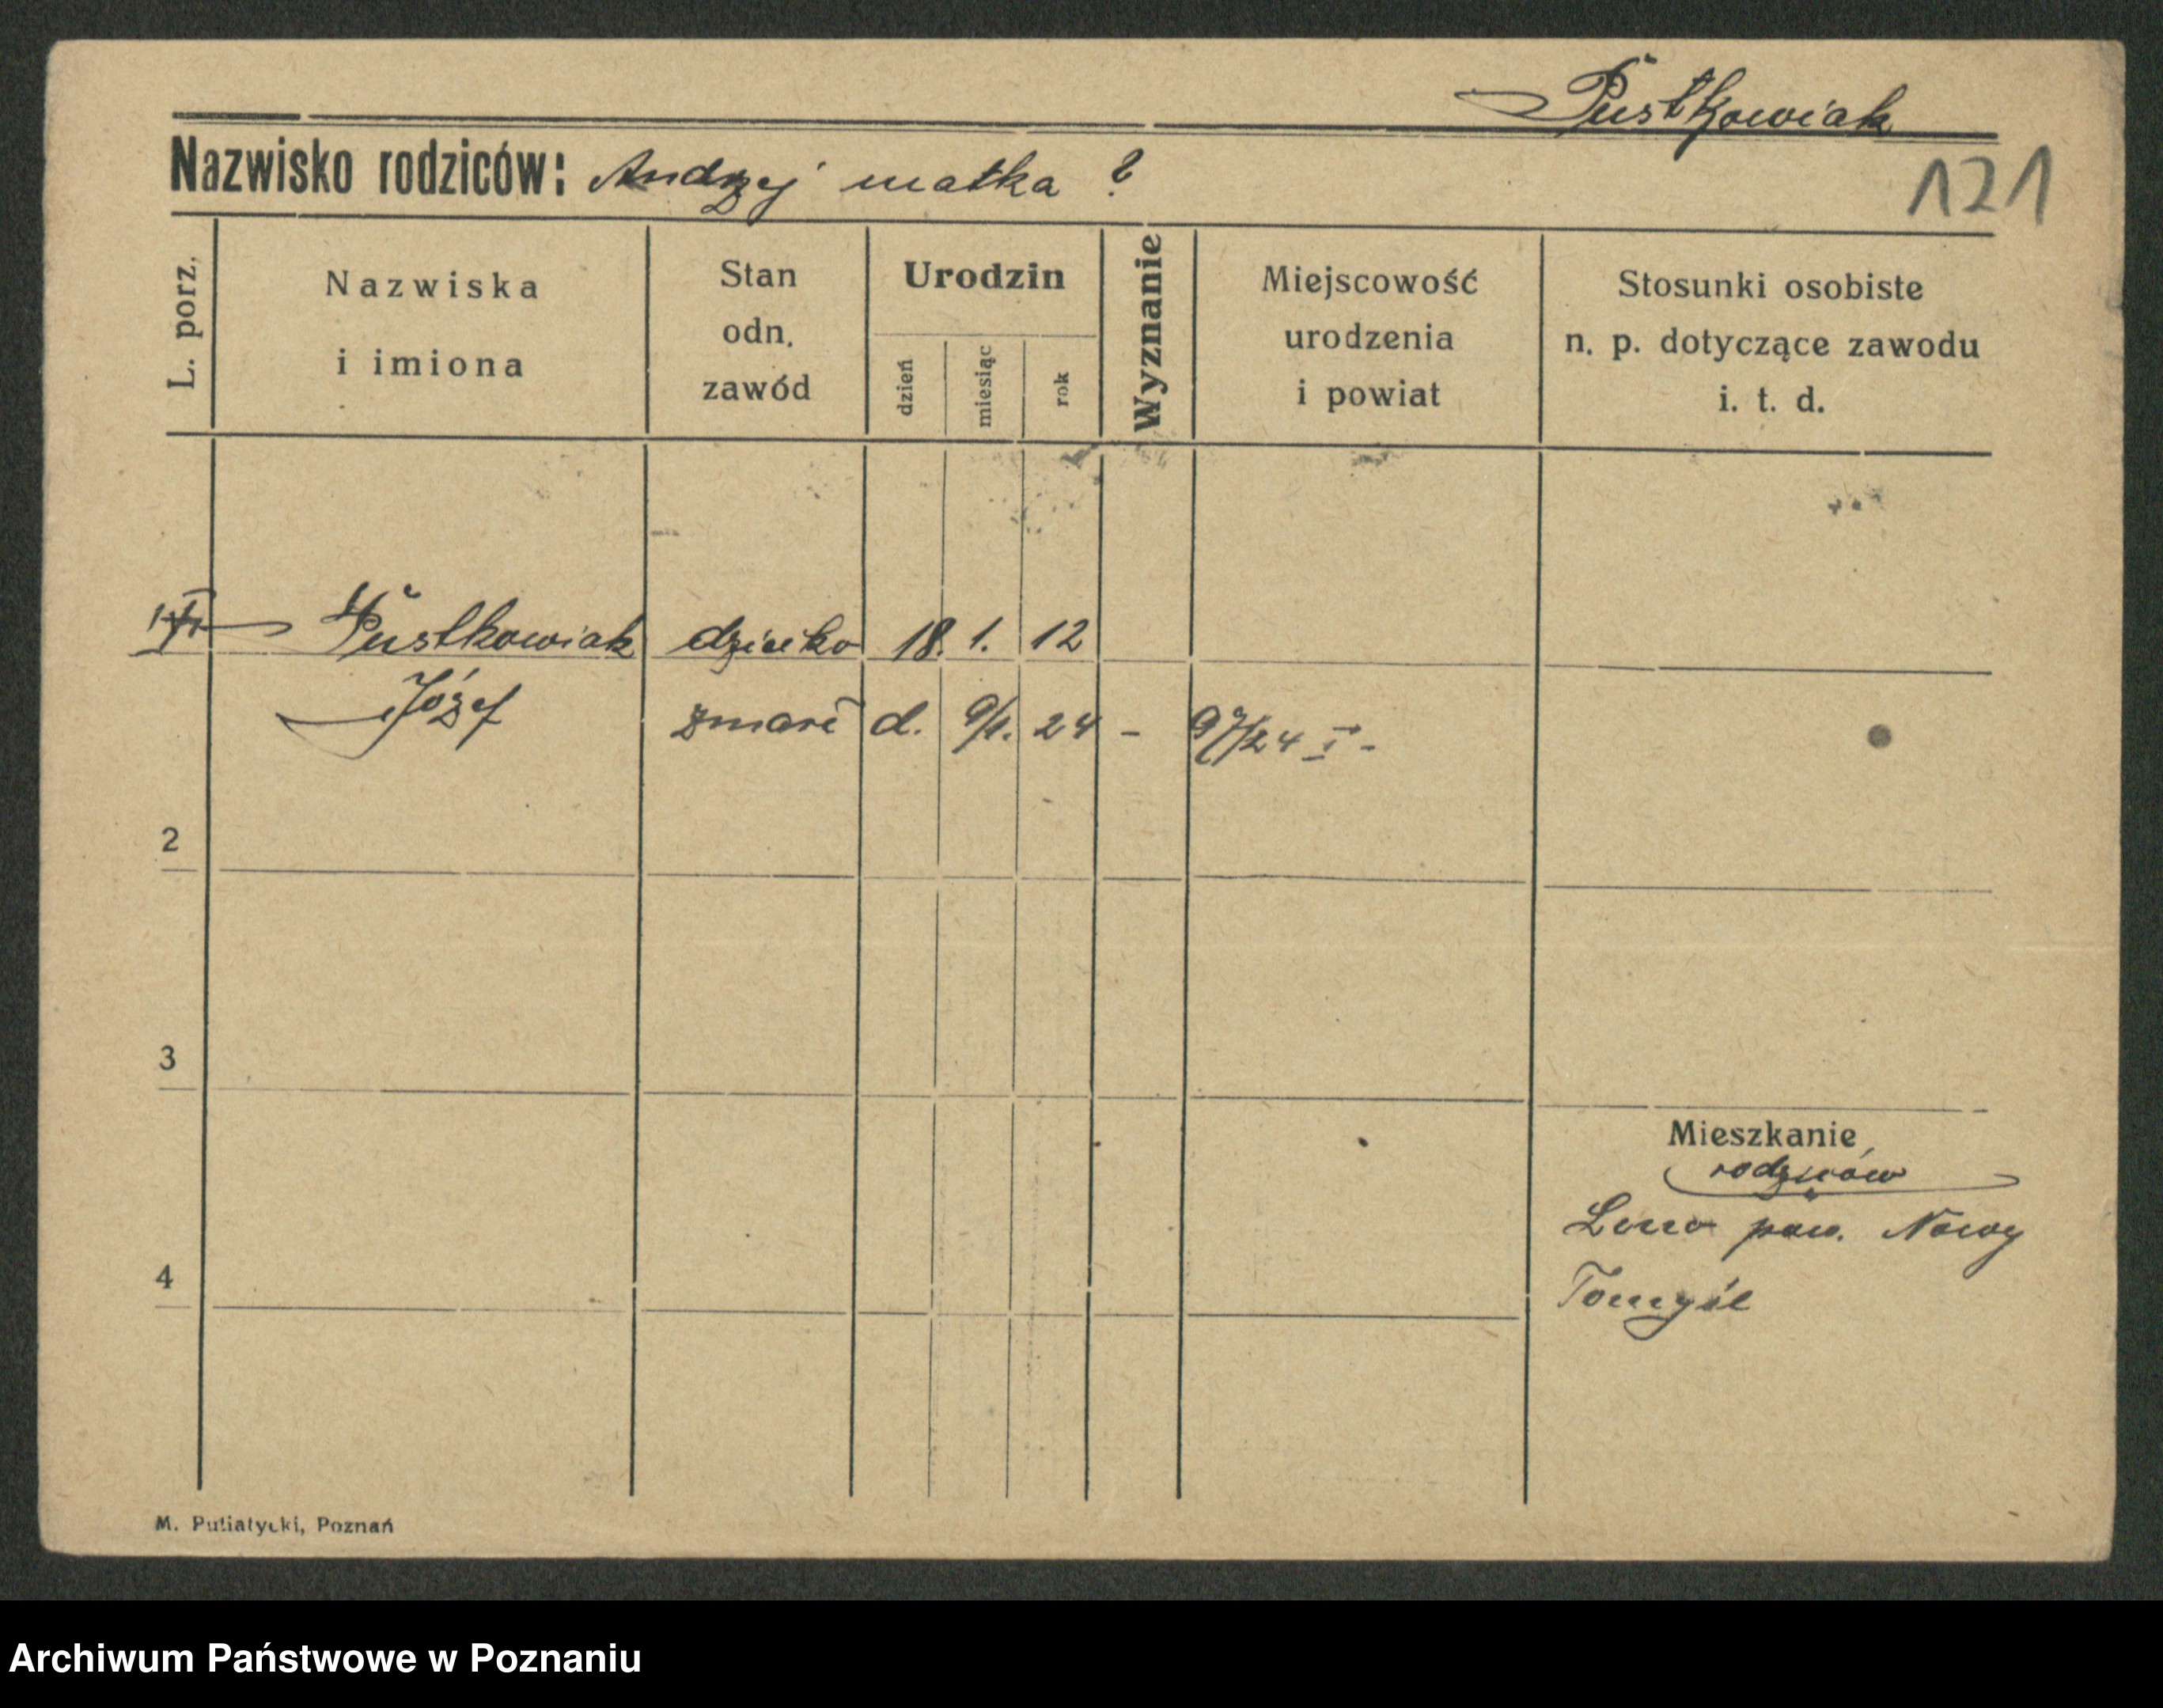 Pustkowiak
Nazwisko rodziców: Andrzej matka ?
121
L. porz.
Nazwiska
i imiona
Stan
odn.
zawód
Urodzin
dzień
miesiąc
rok
Wyznanie
Miejscowość
urodzenia
i powiat
Stosunki osobiste
n. p. dotyczące zawodu
i. t. d.
Pustkowiak dziecko 18. 1. 12
Józef zmarł d. 9/1. 24 - 97/24 I -
2
3
Mieszkanie
rodziców
pow. Nowy
Tomyśl
4
M. Putiatycki, Poznań
Archiwum Państwowe w Poznaniu